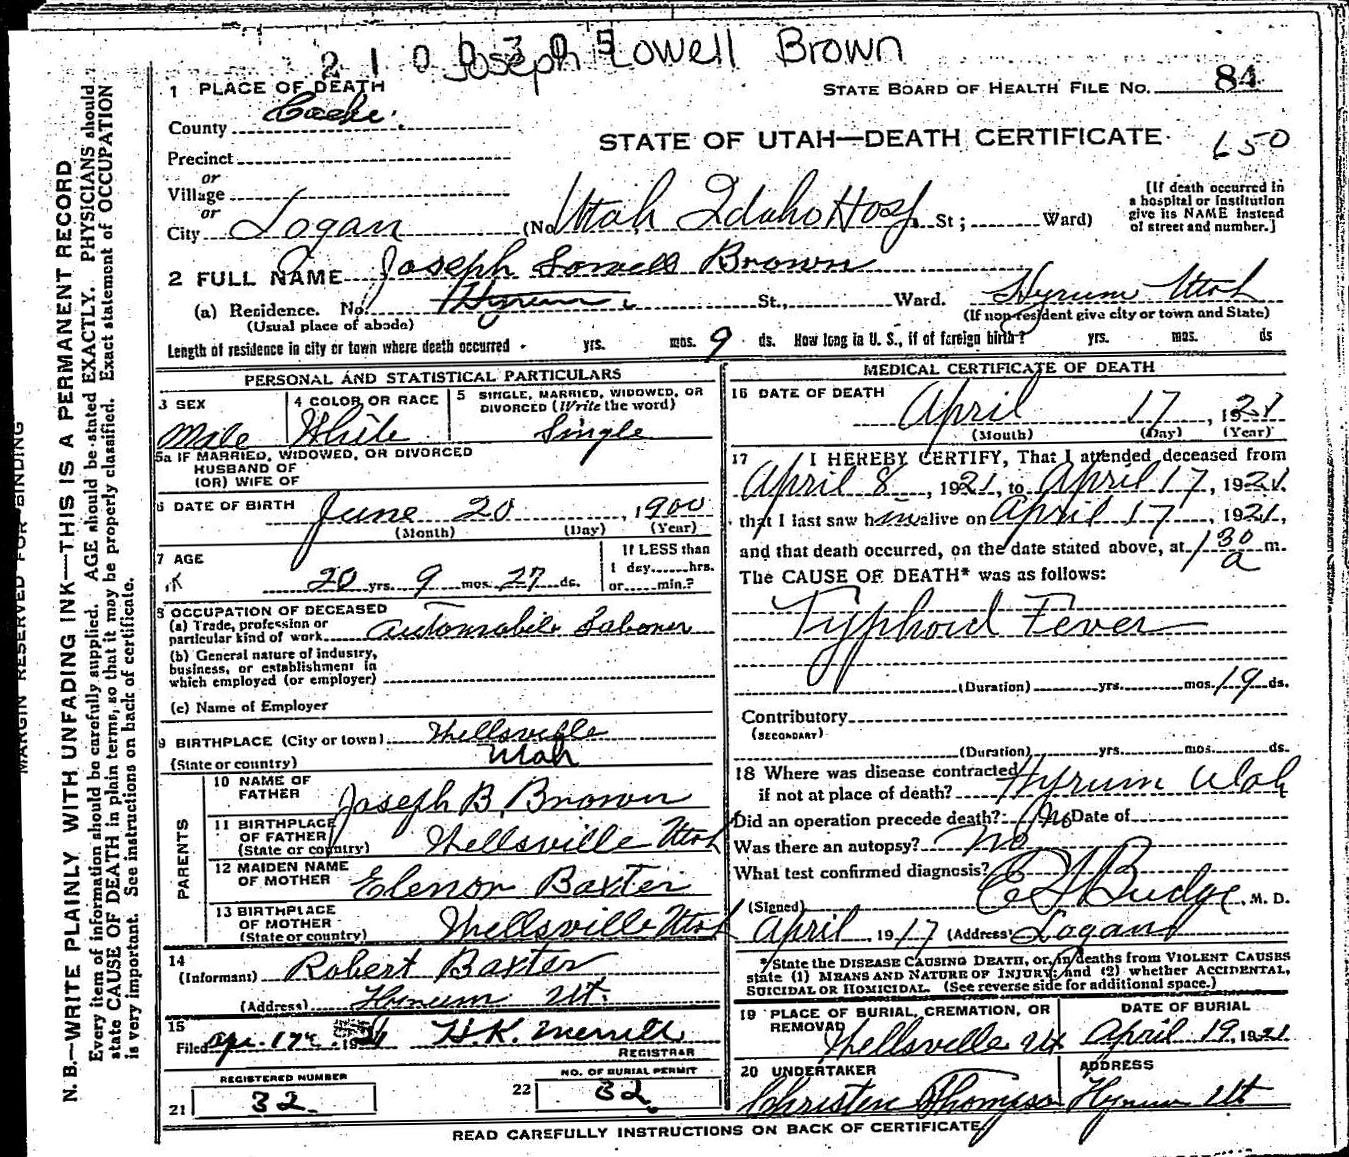 2 1 0 0 3 0 5 Joseph Lowell Brown
1 PLACE OF DEATH
STATE BOARD OF HEALTH FILE NO. 84
County Cache.
STATE OF UTAH—DEATH CERTIFICATE 650
Precinct
or
Village
or
City Logan (No Utah Idaho Hosp. St; Ward)
[If death occurred in
a hospital or institution
give its NAME instead
of street and number.]
2 FULL NAME Joseph Lowell Brown
(a) Residence. No. Hyrum St., Ward. Hyrum Utah
(Usual place of abode) (If non-resident give city or town and State)
Length of residence in city or town where death occurred yrs. mos. 9 ds. How long in U. S., if of foreign birth? yrs. mos. ds
PERSONAL AND STATISTICAL PARTICULARS
3 SEX
Male
4 COLOR OR RACE
White
5 SINGLE, MARRIED, WIDOWED, OR
DIVORCED (Write the word)
Single
5a IF MARRIED, WIDOWED, OR DIVORCED
HUSBAND OF
(OR) WIFE OF
6 DATE OF BIRTH June 20, 1900
(Month) (Day) (Year)
7 AGE
20 yrs. 9 mos. 27 ds.
If LESS than
1 day......hrs.
or......min.?
8 OCCUPATION OF DECEASED
(a) Trade, profession or
particular kind of work Automobile Laborer
(b) General nature of industry,
business, or establishment in
which employed (or employer)
(c) Name of Employer
9 BIRTHPLACE (City or town) Wellsville
(State or country) Utah
PARENTS
10 NAME OF
FATHER Joseph B. Brown
11 BIRTHPLACE
OF FATHER
(State or country) Wellsville Utah
12 MAIDEN NAME
OF MOTHER Elenor Baxter
13 BIRTHPLACE
OF MOTHER
(State or country) Wellsville Utah
14
(Informant) Robert Baxter
(Address) Hyrum Ut.
15
Filed Apr. 17, 1921 H.K. Merrill
REGISTRAR
REGISTERED NUMBER
21 32
NO. OF BURIAL PERMIT
22 32
MEDICAL CERTIFICATE OF DEATH
16 DATE OF DEATH
April 17, 1921
(Month) (Day) (Year)
17 I HEREBY CERTIFY, That I attended deceased from
April 8, 1921, to April 17, 1921.
that I last saw him alive on April 17, 1921,
and that death occurred, on the date stated above, at 1 30 a m.
The CAUSE OF DEATH* was as follows:
Typhoid Fever
(Duration) yrs. mos. 19 ds.
Contributory
(SECONDARY)
(Duration) yrs. mos. ds.
18 Where was disease contracted
if not at place of death? Hyrum Utah
Did an operation precede death? No Date of
Was there an autopsy? No
What test confirmed diagnosis?
(Signed) Budge, M. D.
April, 19 17 (Address) Logan
*State the DISEASE CAUSING DEATH, or, in deaths from VIOLENT CAUSES
state (1) MEANS AND NATURE OF INJURY; and (2) whether ACCIDENTAL,
SUICIDAL OR HOMICIDAL. (See reverse side for additional space.)
19 PLACE OF BURIAL, CREMATION, OR
REMOVAL
Wellsville Ut
DATE OF BURIAL
April 19, 1921.
20 UNDERTAKER
Christen Thompson
ADDRESS
Hyrum Ut
READ CAREFULLY INSTRUCTIONS ON BACK OF CERTIFICATE.
MARGIN RESERVED FOR BINDING
N. B.—WRITE PLAINLY WITH UNFADING INK—THIS IS A PERMANENT RECORD
Every item of information should be carefully supplied. AGE should be stated EXACTLY. PHYSICIANS should
state CAUSE OF DEATH in plain terms, so that it may be properly classified. Exact statement of OCCUPATION
is very important. See instructions on back of certificate.